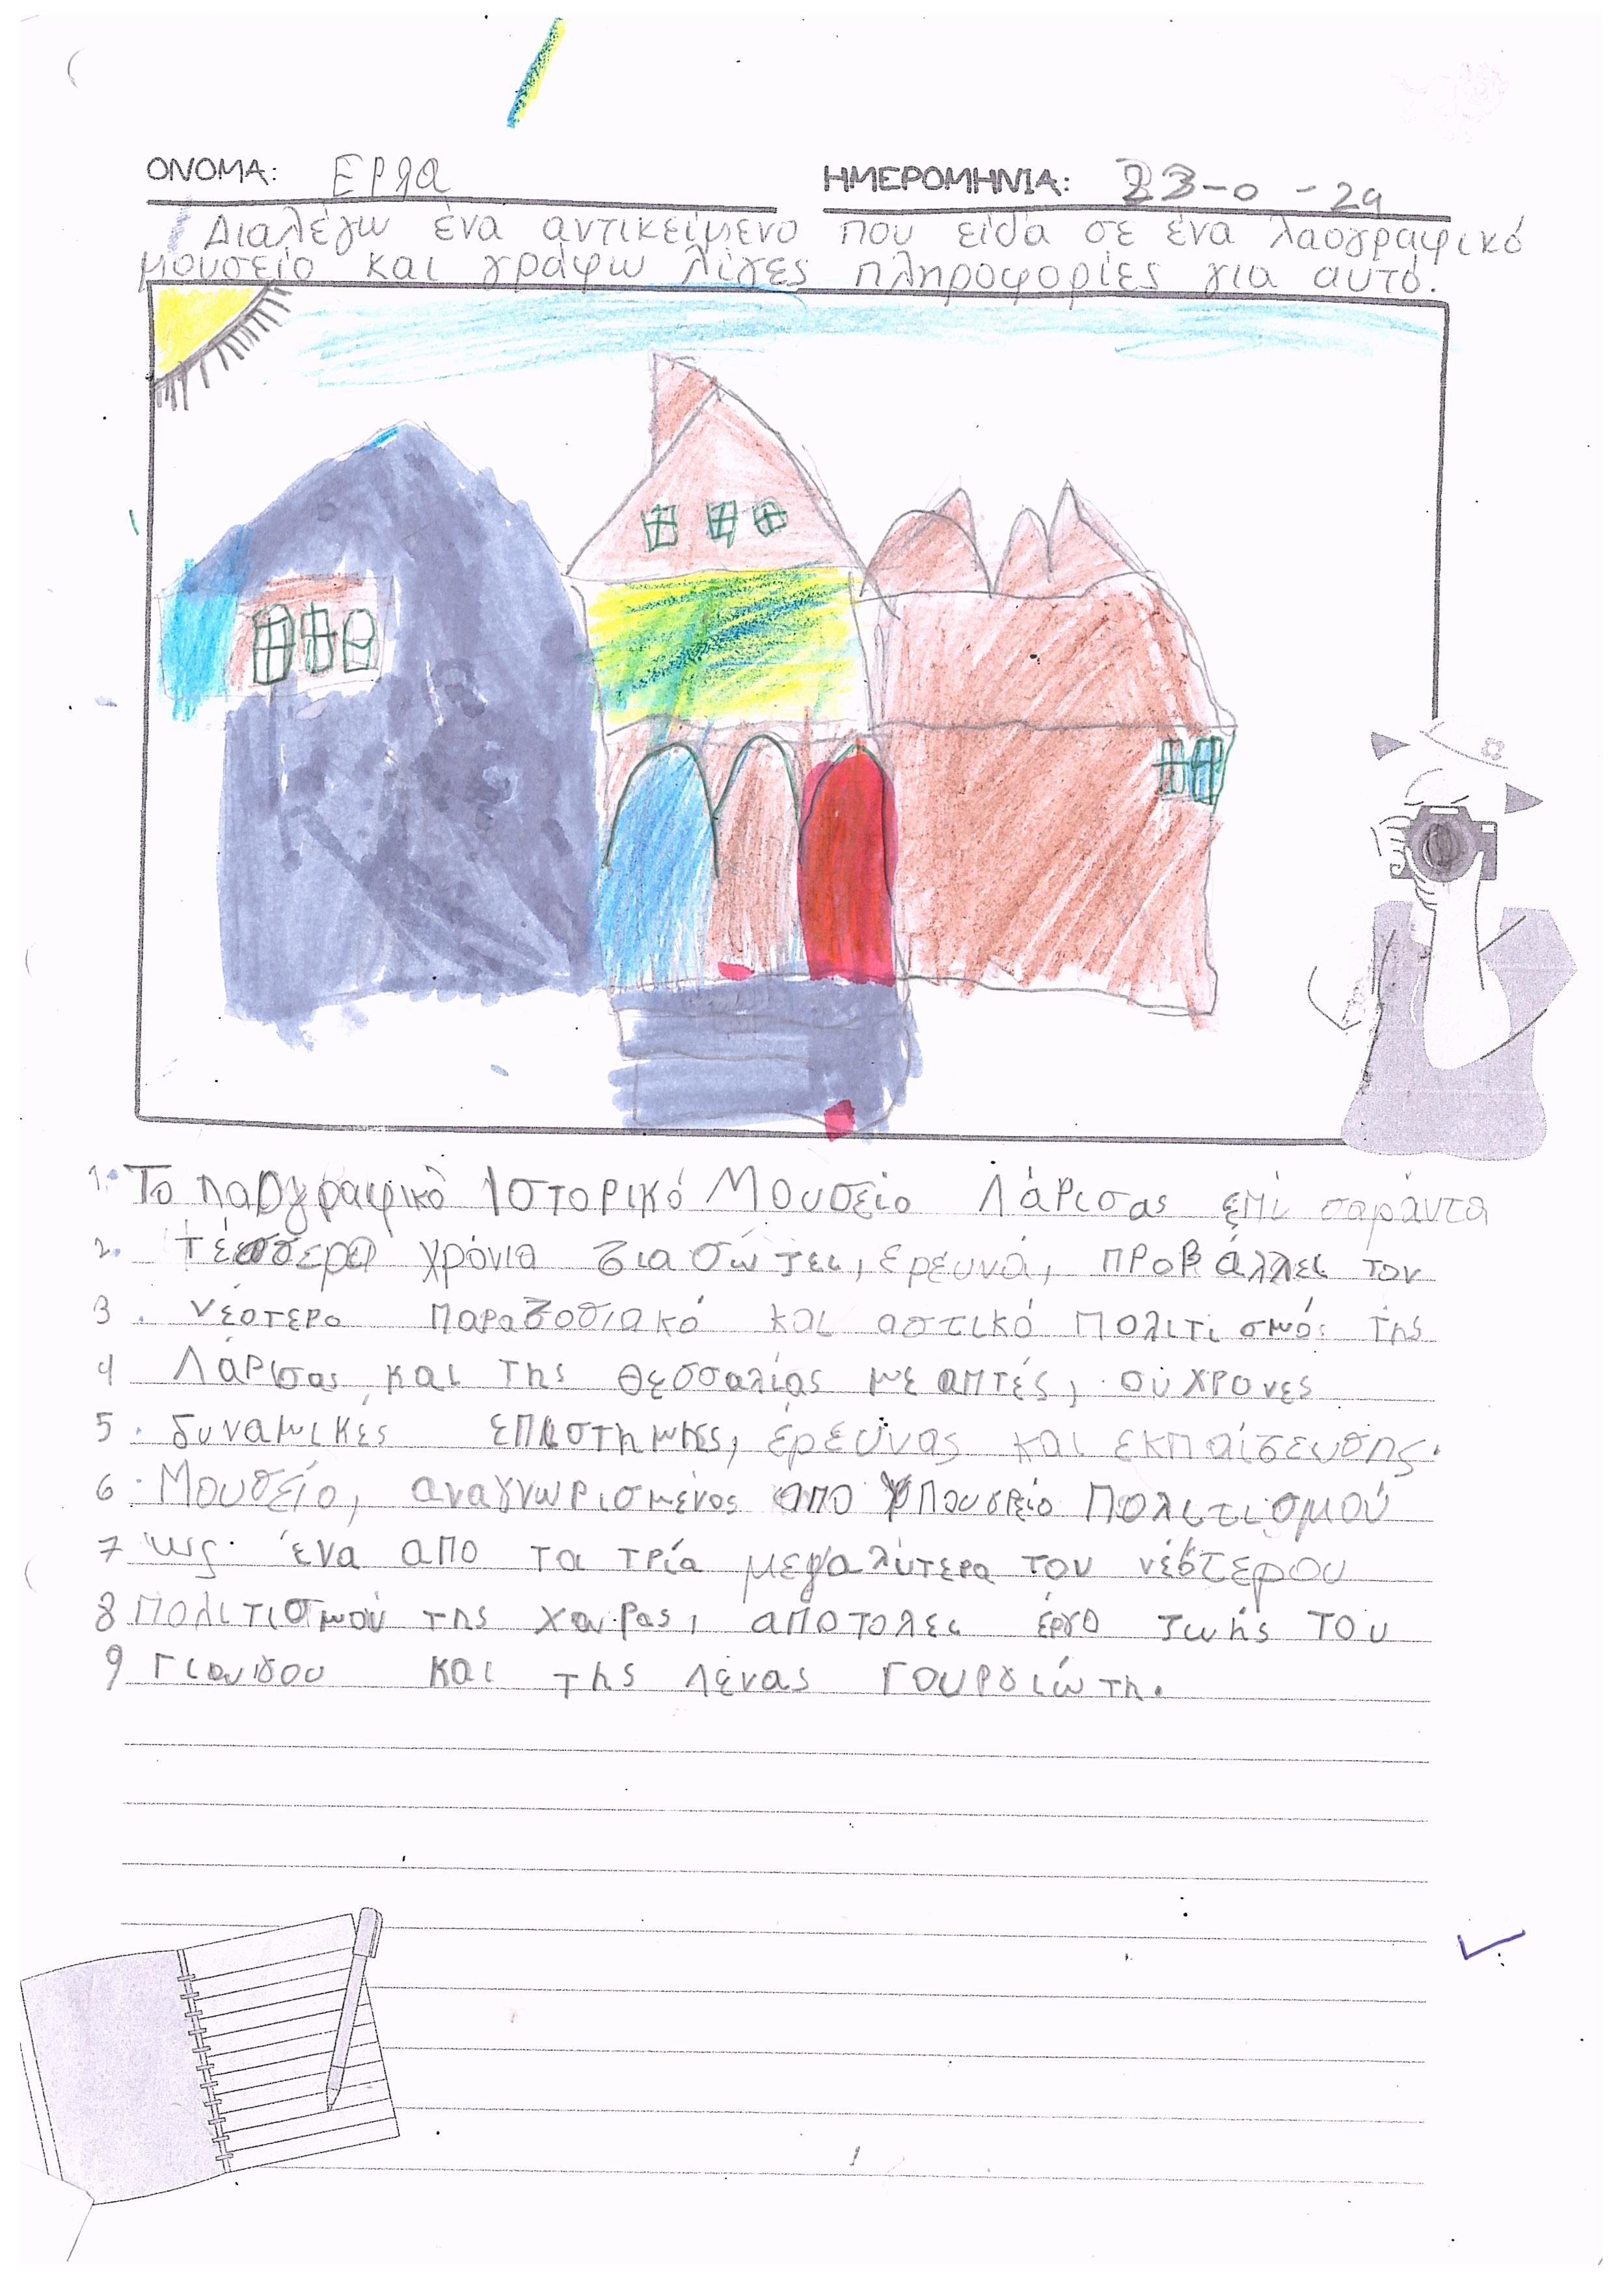 ΟΝΟΜΑ: Εργα ΗΜΕΡΟΜΗΝΙΑ: 23-0-29
Διαλέγω ένα αντικείμενο που είδα σε ένα λαογραφικό
μουσείο και γράφω λίγες πληροφορίες για αυτό.
1. Το λαογραφικό Ιστορικό Μουσείο Λάρισας επί σαράντα
2. τέσσερα χρόνια διασώζει, ερευνά, προβάλλει τον
3. νέοτερο παραδοσιακό και αστικό Πολιτισμό της
4 Λάρισας και της Θεσσαλίας με απτές, σύχρονες
5. δυναμικές επιστημης, έρευνας και εκπαίσευσης.
6. Μουσείο, αναγνωρισμένος απο Υπουργείο Πολιτισμού
7 ως ένα απο τα τρία μεγαλύτερα του νέοτερου
8 Πολιτισμού της χωρας, αποτολει έργο ζωής του
9 Γιαννου και της Λένας Γουργιώτη.